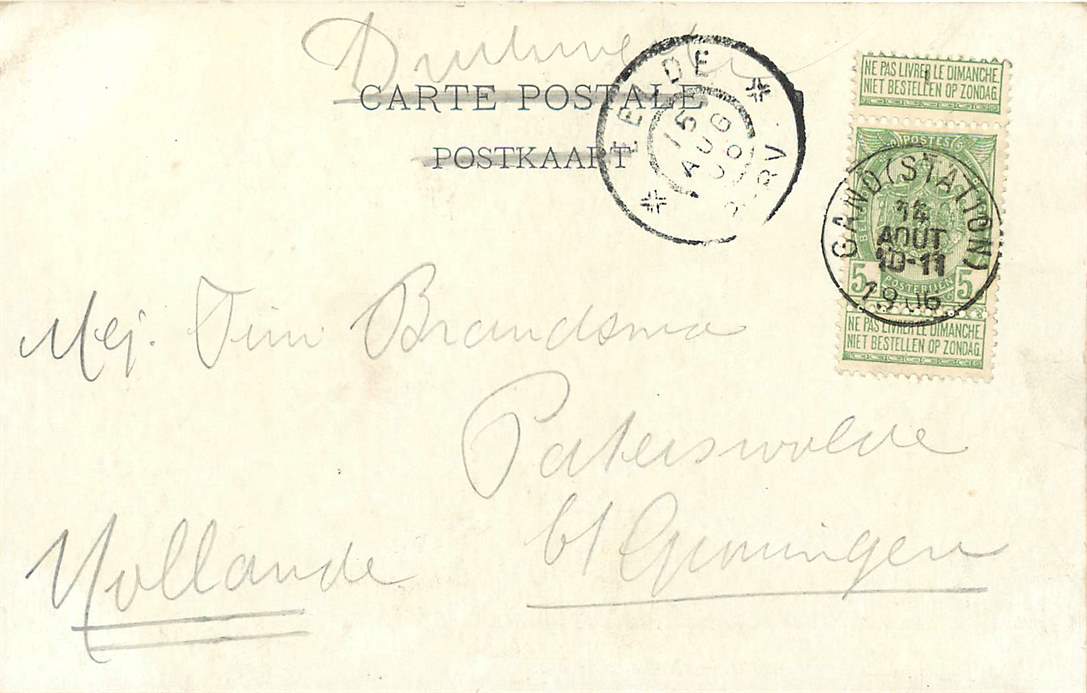 Drukwerk
CARTE POSTALE
POSTKAART
EELDE
15
AUG
06
NE PAS LIVRER LE DIMANCHE.
NIET BESTELLEN OP ZONDAG.
POSTES
GAND (STATION)
14
AOUT
10-11
1906
5 POSTERIJEN 5
NE PAS LIVRER LE DIMANCHE.
NIET BESTELLEN OP ZONDAG.
Mej. Tini Brandsma
Paterswolde
b/ Groningen
Hollande